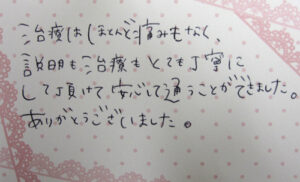 治療はほとんど痛みもなく、
説明も治療もとても丁寧に
して頂けて安心して通うことができました。
ありがとうございました。